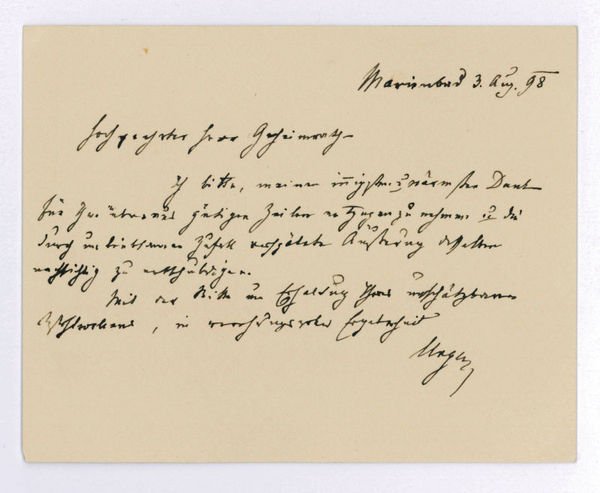 Marienbad 3. Aug. 98
Hochgeehrter Herr Geheimrath
Ich bitte, meinen innigsten u wärmsten Dank
für Ihre überaus gütigen Zeilen entgegenzunehmen u die
durch unliebsamen Zufall verspätete Äußerung desselben
nachsichtig zu entschuldigen.
Mit der Bitte um Erhaltung Ihres unschätzbaren
Wohlwollens, in verehrungsvoller Ergebenheit
Unger